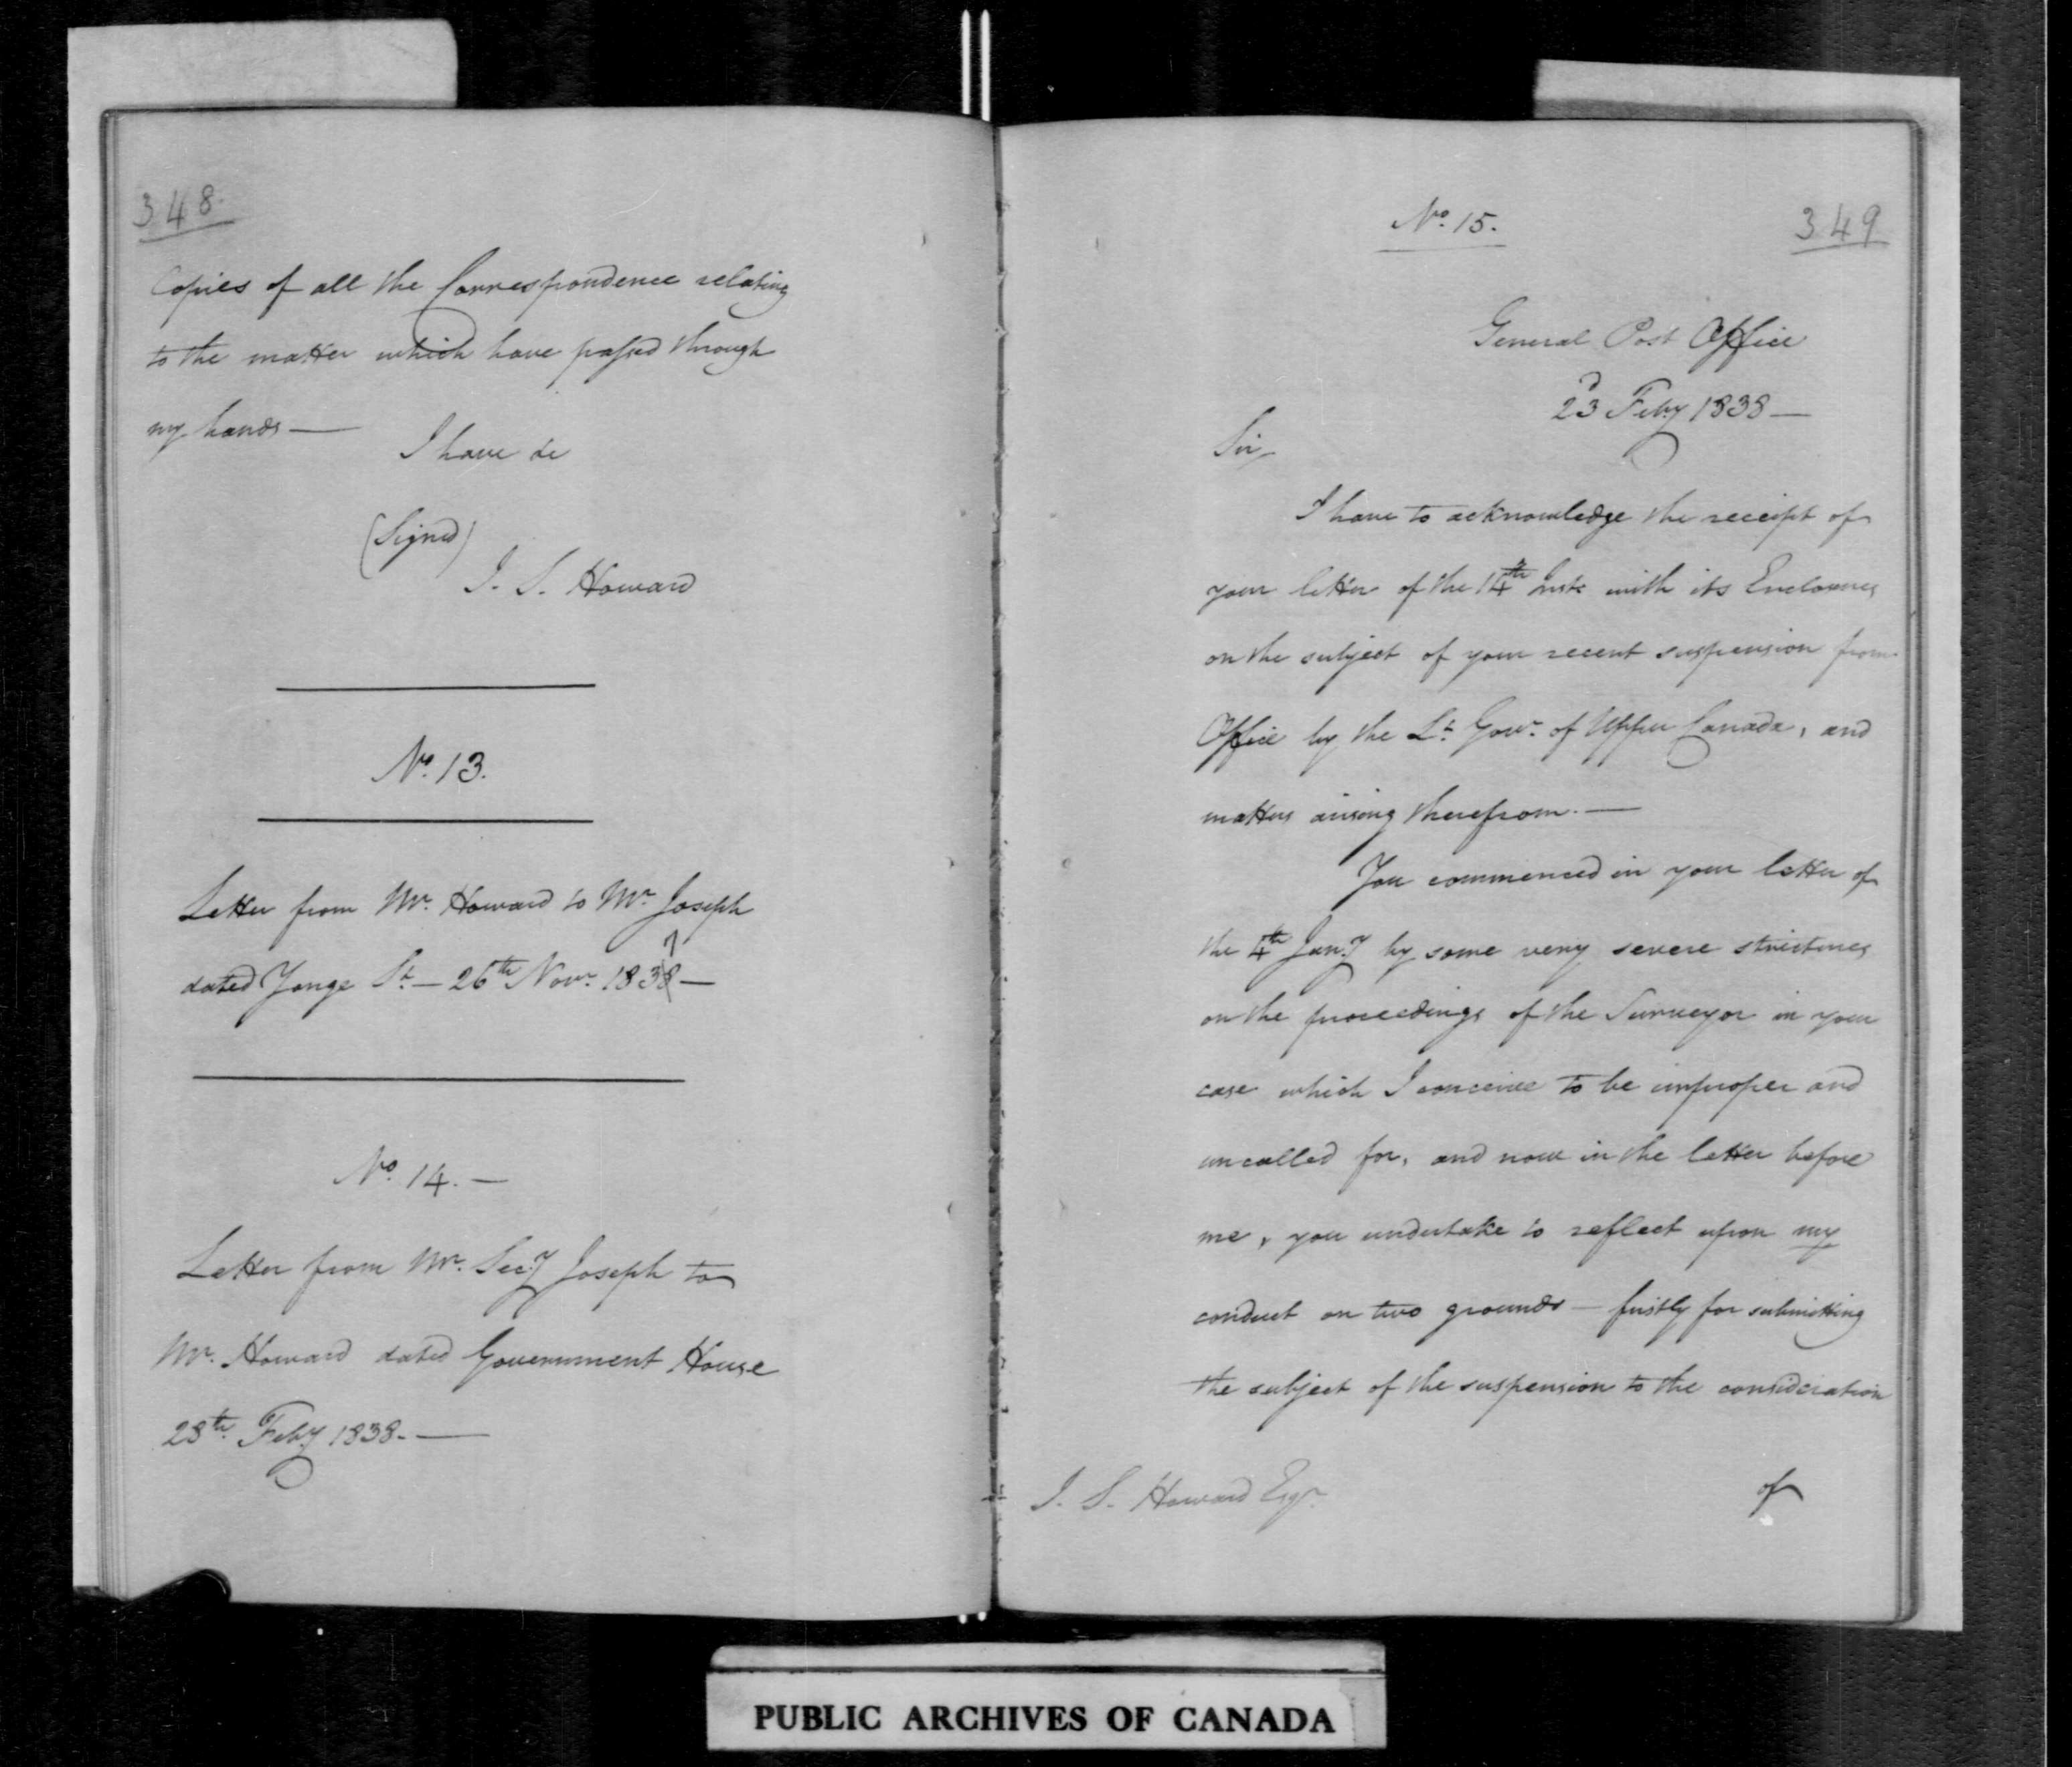 348.
Copies of all the Correspondence relating
to the matter which have passed through
my hands —
I have &c
(Signed)
J. S. Howard
No. 13.
Letter from Mr. Howard to Mr. Joseph
dated Yonge St. — 26th Novr. 1837 —
No. 14. —
Letter from Mr. Secy Joseph to
Mr. Howard dated Government House
28th. Feby 1838. —
No. 15.
349
General Post Office
23d Feby 1838 —
Sir,
I have to acknowledge the receipt of
your letter of the 14th Inst. with its Enclosures
on the subject of your recent suspension from
Office by the Lt. Govr. of Upper Canada, and
matters arising therefrom. —
You commenced in your letter of
the 4th Jany by some very severe strictures
on the proceedings of the Surveyor in your
case which I conceive to be improper and
uncalled for, and now in the letter before
me, you undertake to reflect upon my
conduct on two grounds — firstly for submitting
the subject of the suspension to the consideration
J. S. Howard Esqr.
of
PUBLIC ARCHIVES OF CANADA